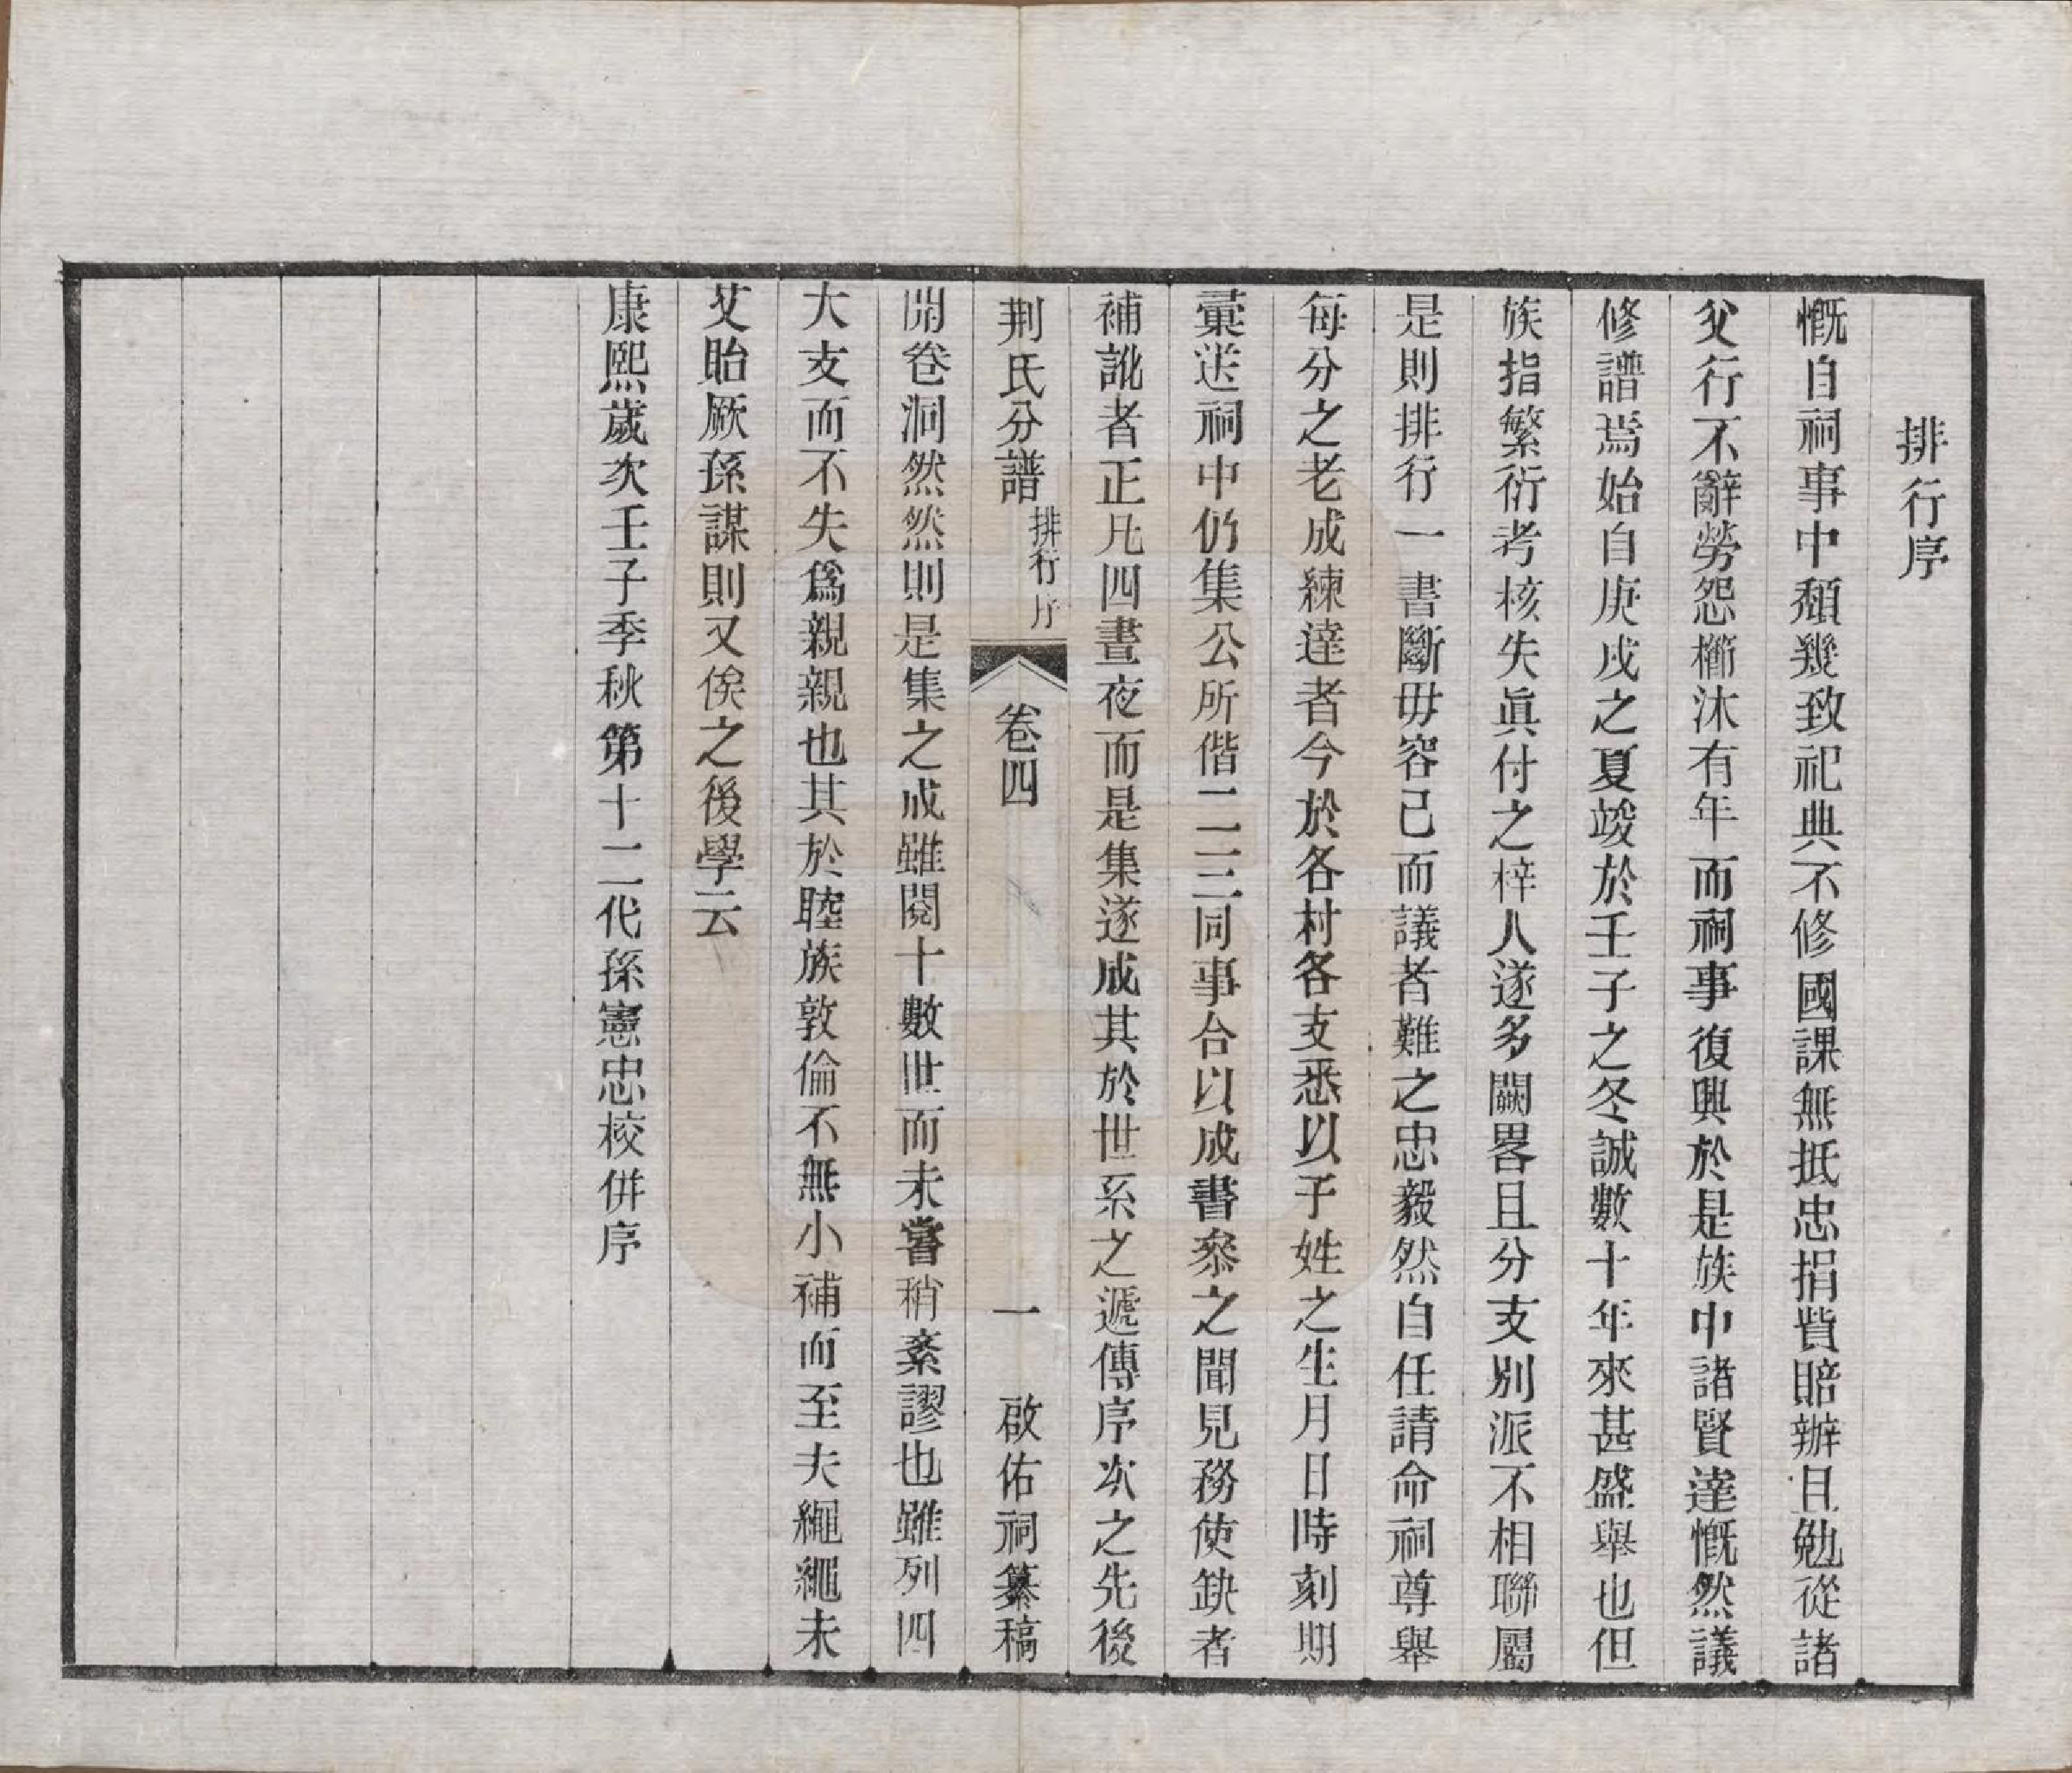 排行序
慨自祠事中頽幾致祀典不修國課無抵忠捐貲賠辦且勉從諸
父行不辭勞怨櫛沐有年而祠事復興於是族中諸賢達慨然議
修譜焉始自庚戌之夏竣於壬子之冬誠數十年來甚盛舉也但
族指繁衍考核失眞付之梓人遂多闕畧且分支別派不相聯屬
是則排行一書斷毋容已而議者難之忠毅然自任請命祠尊舉
每分之老成練達者今於各村各支悉以子姓之生月日時刻期
彙送祠中仍集公所偕二三同事合以成書叅之聞見務使缺者
補訛者正凡四晝夜而是集遂成其於世系之遞傳序次之先後
荆氏分譜 排行序 卷四 一 啟佑祠纂稿
開卷洞然然則是集之成雖閱十數世而未嘗稍紊謬也雖列四
大支而不失爲親親也其於睦族敦倫不無小補而至夫繩繩未
艾貽厥孫謀則又俟之後學云
康熙歲次壬子季秋第十二代孫憲忠校併序